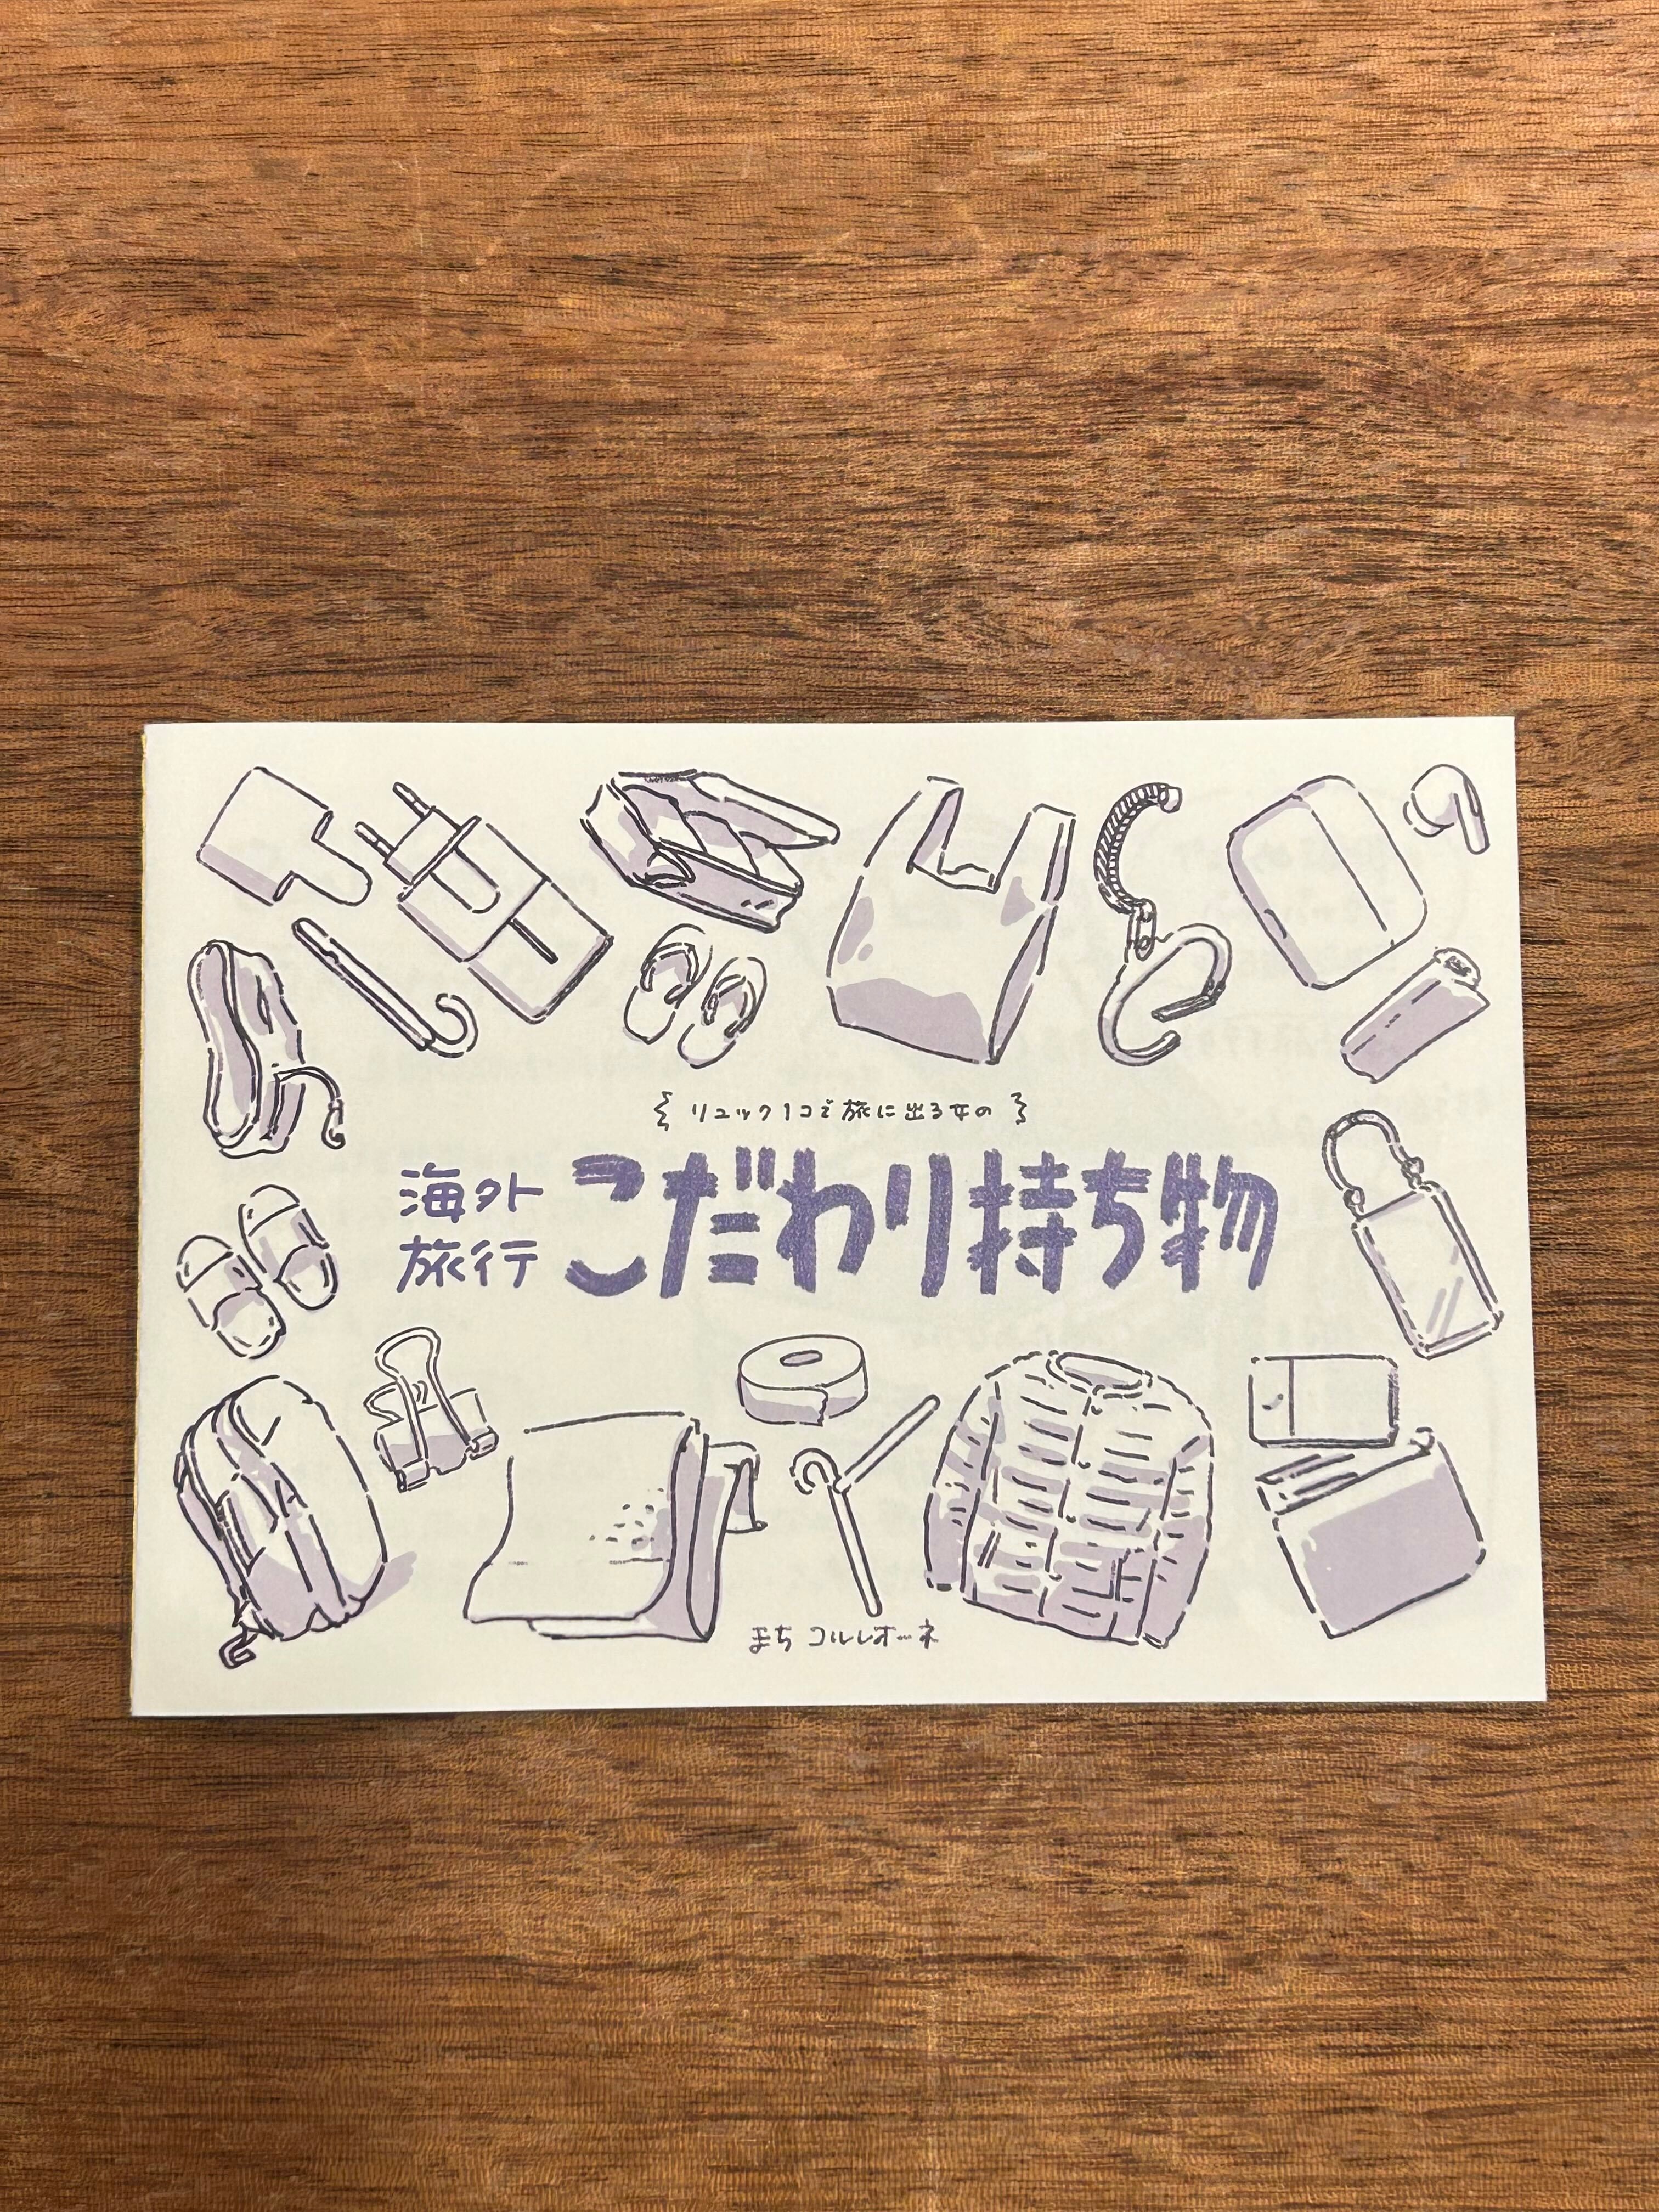 リュック1コで旅に出る女の
海外
旅行
こだわり持ち物
まち コルレオーネ